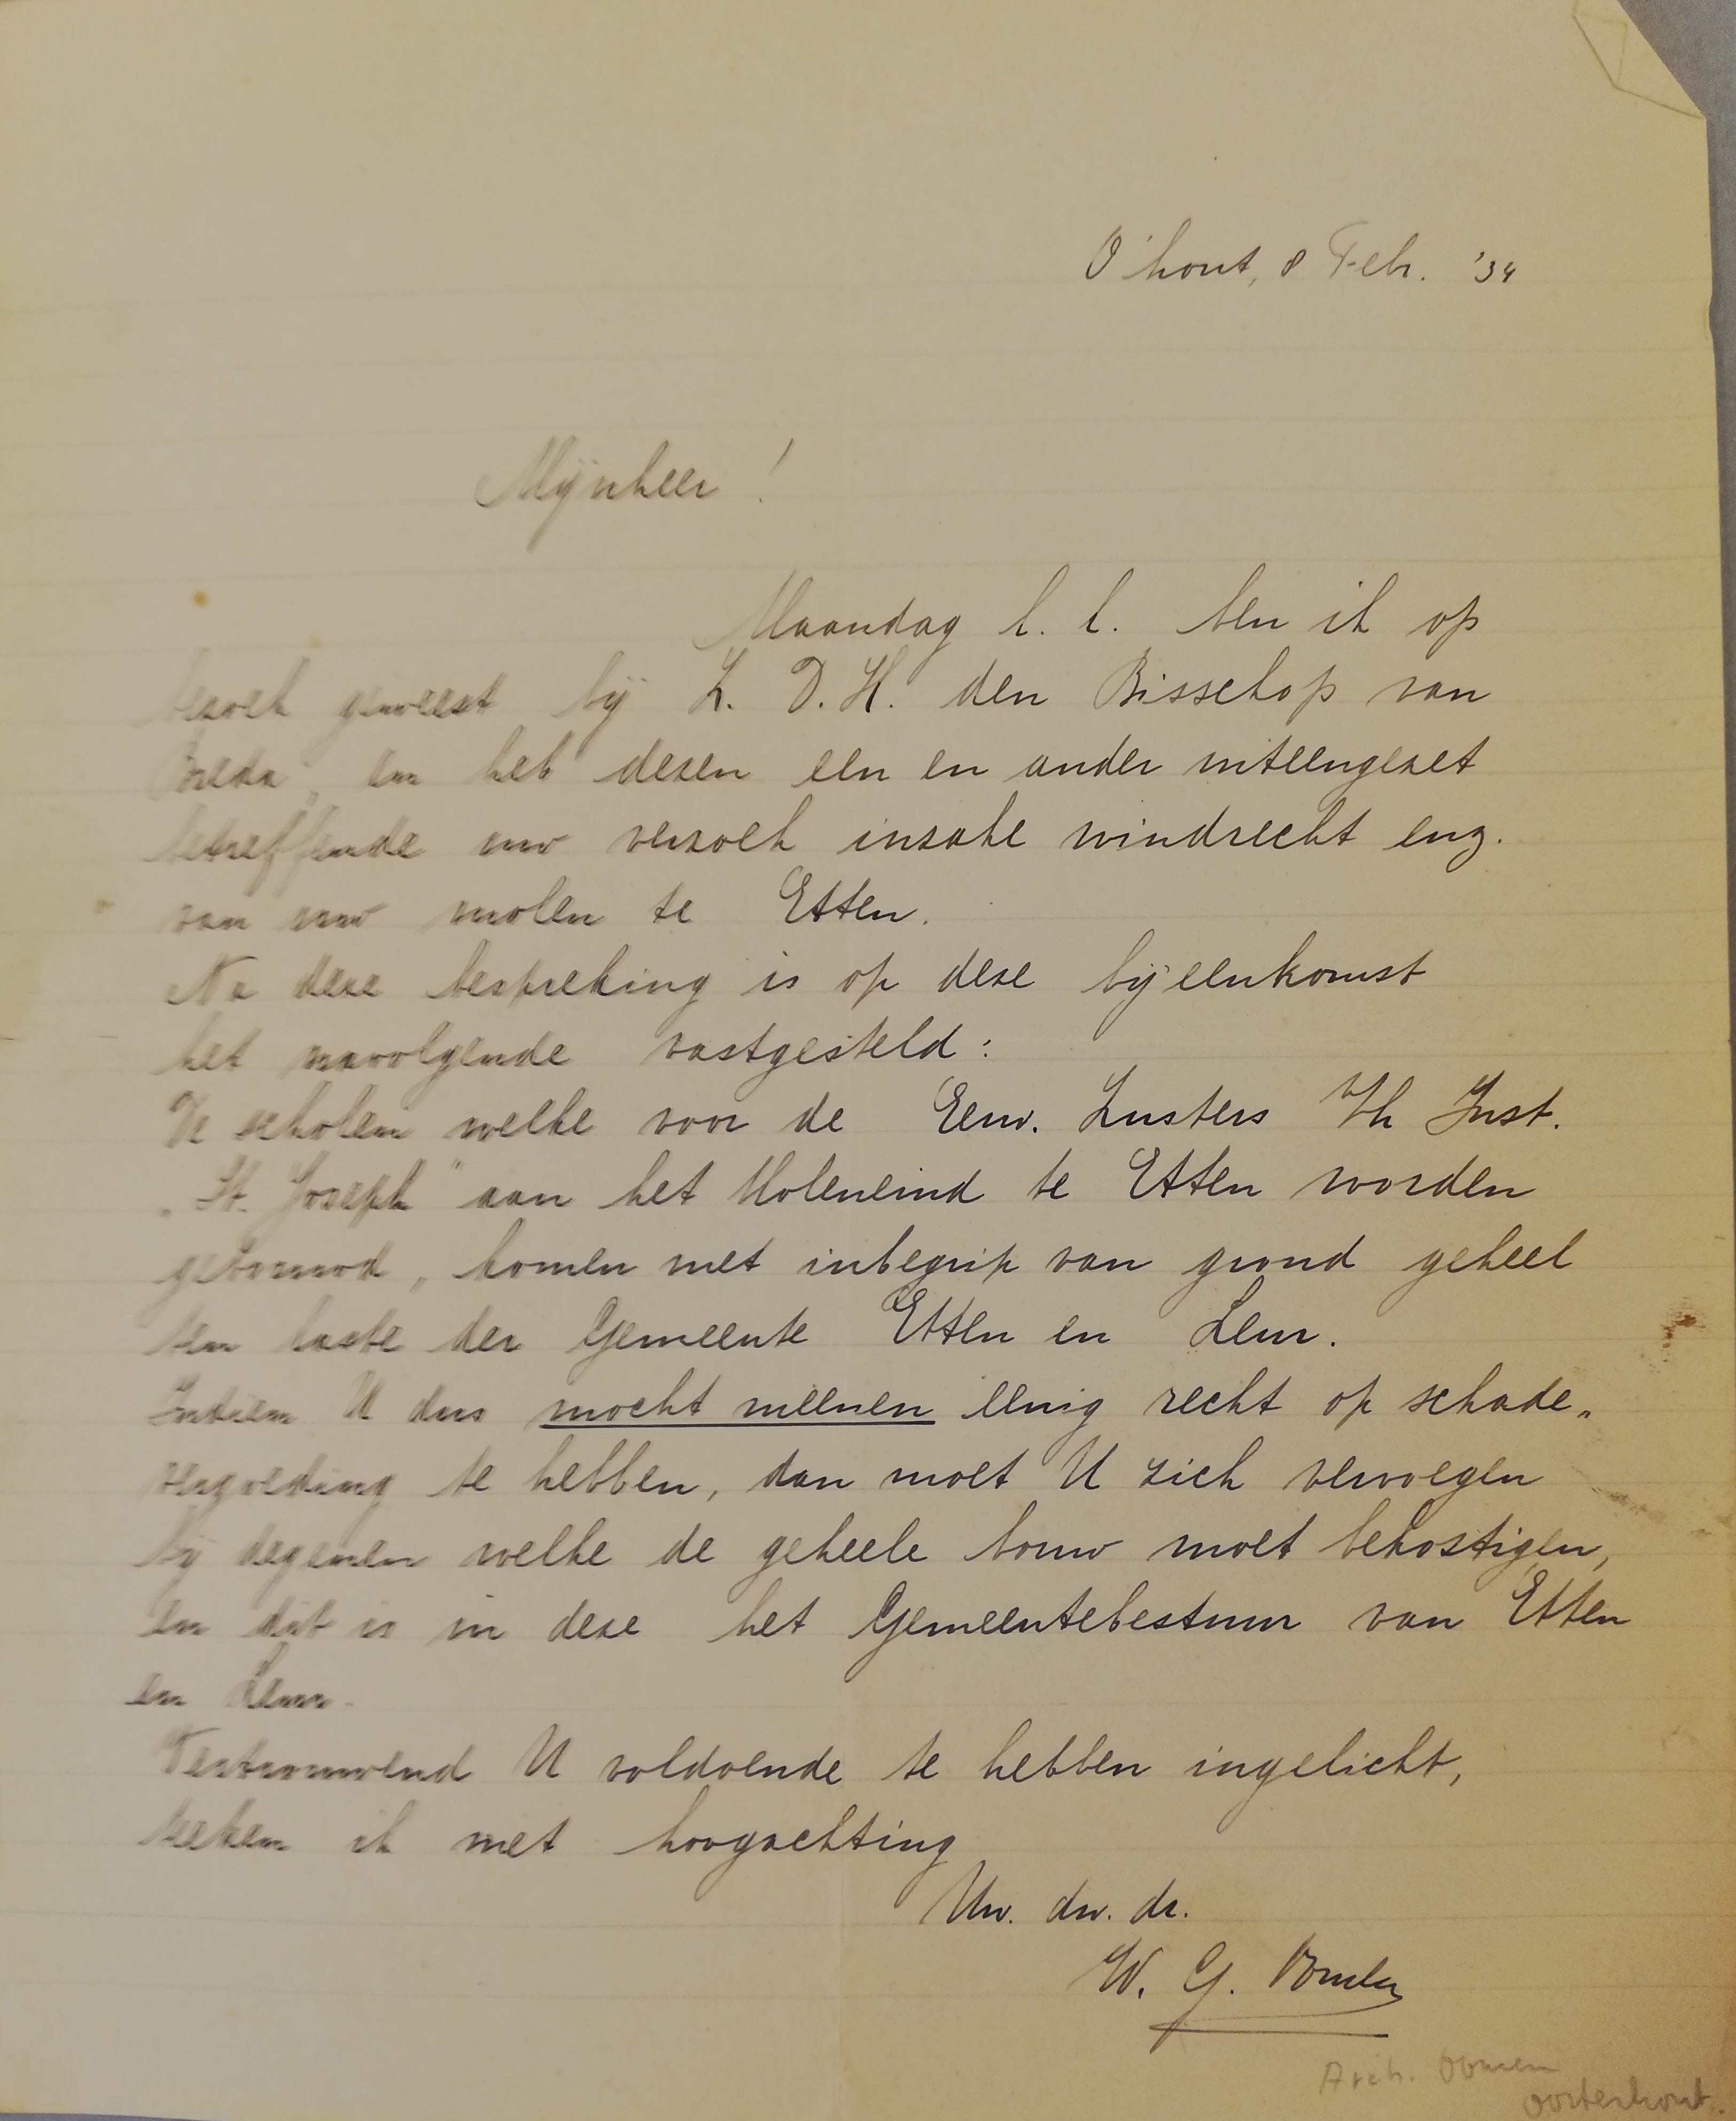 O'hout, 8 Feb. '34
Mijnheer !
Maandag l. l. ben ik op
bezoek geweest bij Z. D. H. den Bisschop van
Breda, en heb dezen een en ander uiteengezet
betreffende uw verzoek inzake windrecht enz.
van uw molen te Etten.
Na deze bespreking is op deze bijeenkomst
het navolgende vastgesteld :
De scholen welke voor de Eerw. Zusters v/h Inst.
„St. Joseph" aan het Moleneind te Etten worden
gebouwd, komen met inbegrip van grond geheel
ten laste der Gemeente Etten en Leur.
Indien U dus mocht meenen eenig recht op schade„
vergoeding te hebben, dan moet U zich vervoegen
bij degenen welke de geheele bouw moet bekostigen,
en dit is in deze het Gemeentebestuur van Etten
en Leur.
Vertrouwend U voldoende te hebben ingelicht,
teeken ik met hoogachting
Uw. dw. dr.
W. G.
Arch. Oomen
Oosterhout.